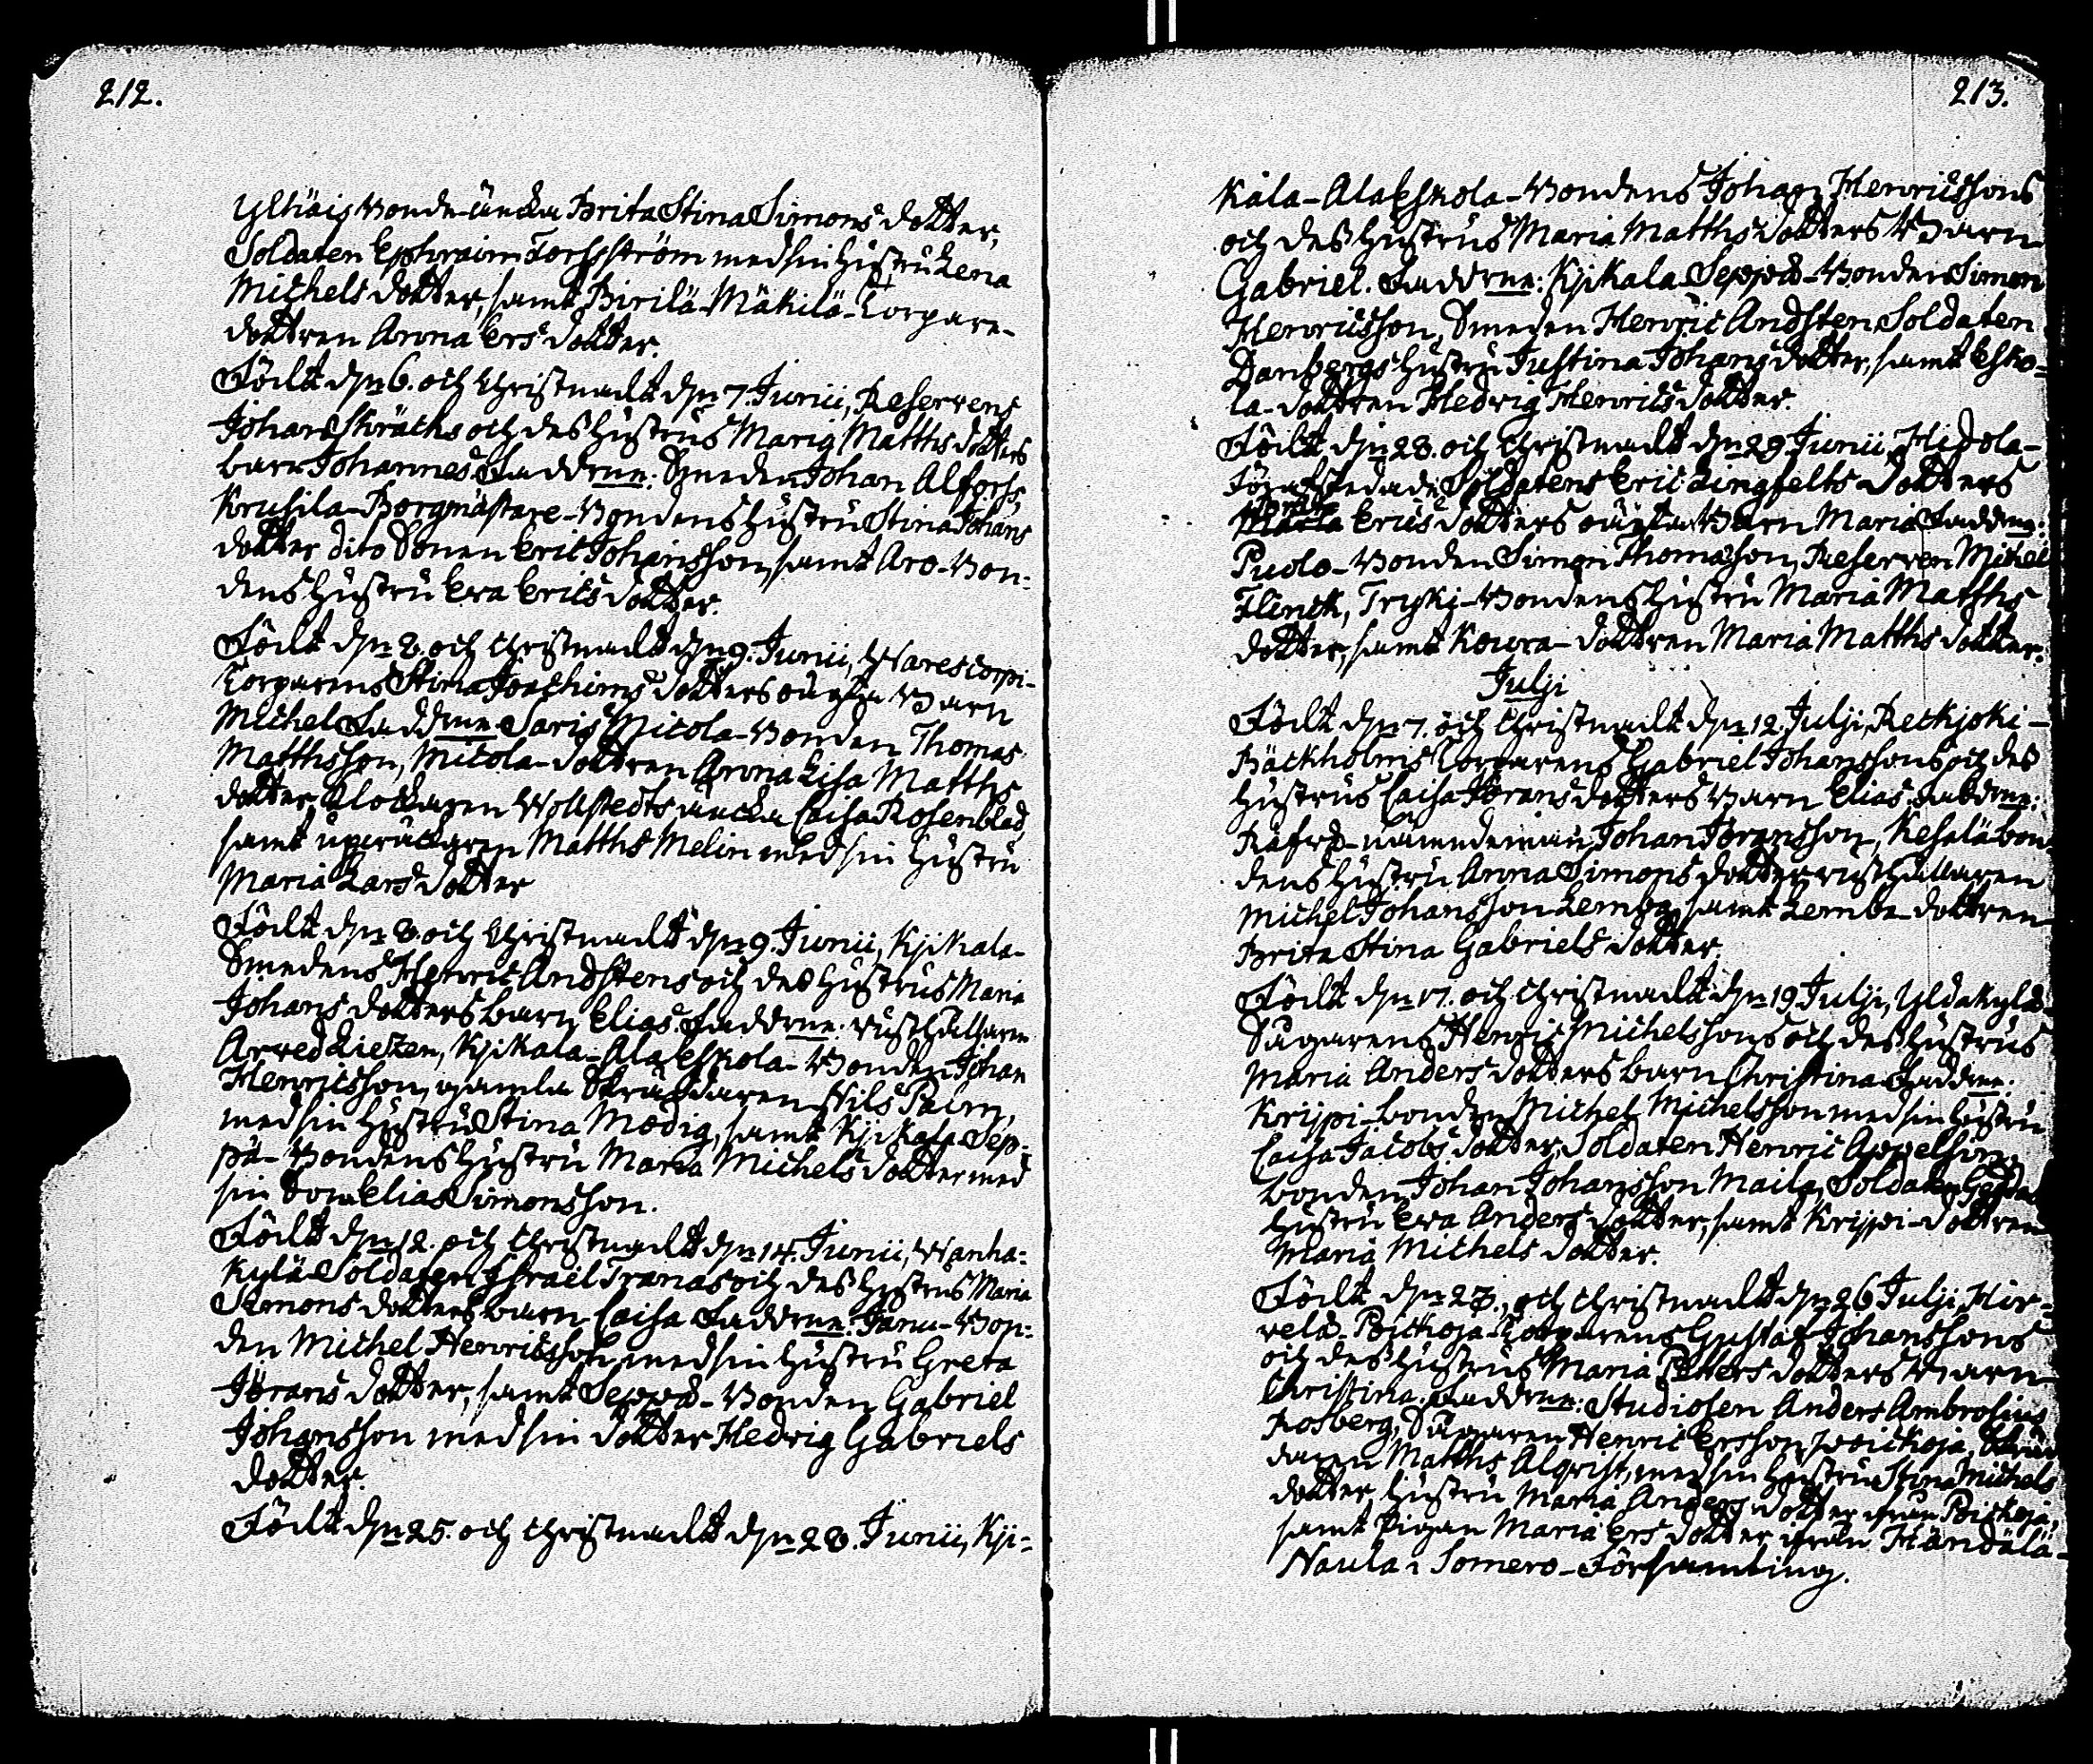 212.
Yltäis Bonde-äncka Brita Stina Simons dotter,
Soldaten Ephraim Forsström med sin hustru Lena
Michels dotter, samt Pirilä-Mäkilä-Torpare-
dottren Anna Ers dotter.
Född dṇ 6. och Christnadt dṇ 7. Junii, Reservens
Johan Skräths och dess hustrus Maria Matths dotters
barn Johannes. Faddrne: Smeden Johan Alforss,
Krusila-Borgmästare-Bondens hustru Stina Johans
dotter dito Sonen Eric Johansson, samt Aro-Bon-
dens hustru Eva Erics dotter.
Född dṇ 8. och Christnadt dṇ 9. Junii, Warescorpi-
Torparens Stina Joachims dotters oägta Barn
Michel. Faddrne Saris Nicola-Bonden Thomas
Matthsson, Nicola-dottren Anna Lisa Matths
dotter, Klockaren Wollstedts äncka Caisa Rosenblad,
samt Matths Melin med sin hustru
Maria Lars dotter
Född dṇ 8. och Christnadt dṇ 9. Junii, Kjikala-
Smedens Henric Andstens och dess hustrus Maria
Johans dotters barn Elias. Faddrne: rusthållaren
Arved Lietzen, Kjikala-AlaEskola-Bonden Johan
Henricsson, gamla Skräddaren Nils Palm,
med sin hustru Stina Modig, samt Kjikala Sep-
pä-Bondens hustru Maria Michels dotter med
sin Son Elias Simonsson.
Född dṇ 12. och Christnadt dṇ 14. Junii, Wanha-
kylä Soldaten Israel Tranas och dess hustrus Maria
Simons dotters barn Caisa Faddrne: Janu-Bon-
den Michel Henricsson med sin hustru Greta
Jörans dotter, samt Seppä-Bonden Gabriel
Johansson med sin dotter Hedvig Gabriels
dotter.
Född dṇ 25. och Christnadt dṇ 28. Junii, Kji-
213.
kala-AlaEskola-Bondens Johan Henricssons
och dess hustrus Maria Matths dotters Barn
Gabriel. Faddrne: Kjikala Seppä-Bonden Simon
Henricsson, Smeden Henric Andsten, Soldaten
Danbergs hustru Justina Johans dotter, samt Esko-
la-dottren Hedvig Henrics dotter.
Född dṇ 28. och Christnadt dṇ 29. Junii Hidola-
Soldatens Eric Lingfelts dotters
Maria Erics dotters oägta Barn Maria Faddrne:
Puolo-Bonden Simon Thomasson, Reserven Michel
Flinck, Tryki-Bondens hustru Maria Matths
dotter, samt Kowra-dottren Maria Matths dotter.
Julji
Född dṇ 7. och Christnadt dṇ 12. Julji, Reckjoki-
Bäckholms Torparens Gabriel Johanssons och dess
hustrus Caisa Jörans dotters Barn Elias. Faddrne:
nämndeman Johan Jöransson, Keselä bon-
dens hustru Anna Simons dotter rusthållaren
Michel Johansson Lembe, samt Lembe-dottren
Brita Stina Gabriels dotter.
Född dṇ 17. och Christnadt dṇ 19. Julji, Yldakylä
Sågarens Henric Michelssons och dess hustrus
Maria Anders dotters barn Christina. Faddrne:
Krijpi-bonden Michel Michelsson med sin hustru
Caisa Jacobs dotter, Soldaten Henric Appelsin,
bonden Johan Johansson Maila, Soldaten
hustru Eva Anders dotter, samt Krijpi-dottren
Maria Michels dotter.
Född dṇ 23., och Christnadt dṇ 26. Julji, Hir-
velä-Poickoja-Torparens Gustaf Johanssons
och dess hustrus Maria Petters dotters Barn
Christina: Faddrne: Studiosen Anders Ambrosius
Rosberg, Sågaren Henric Ersson Poickoja, Skräd-
daren Matths Alqvist, med sin hustru Stina Michels
dotter, hustru Maria Anders dotter ifrån Poickoja,
samt Pigan Maria Ers dotter ifrån Händälä-
Naula i Somero-Församling.